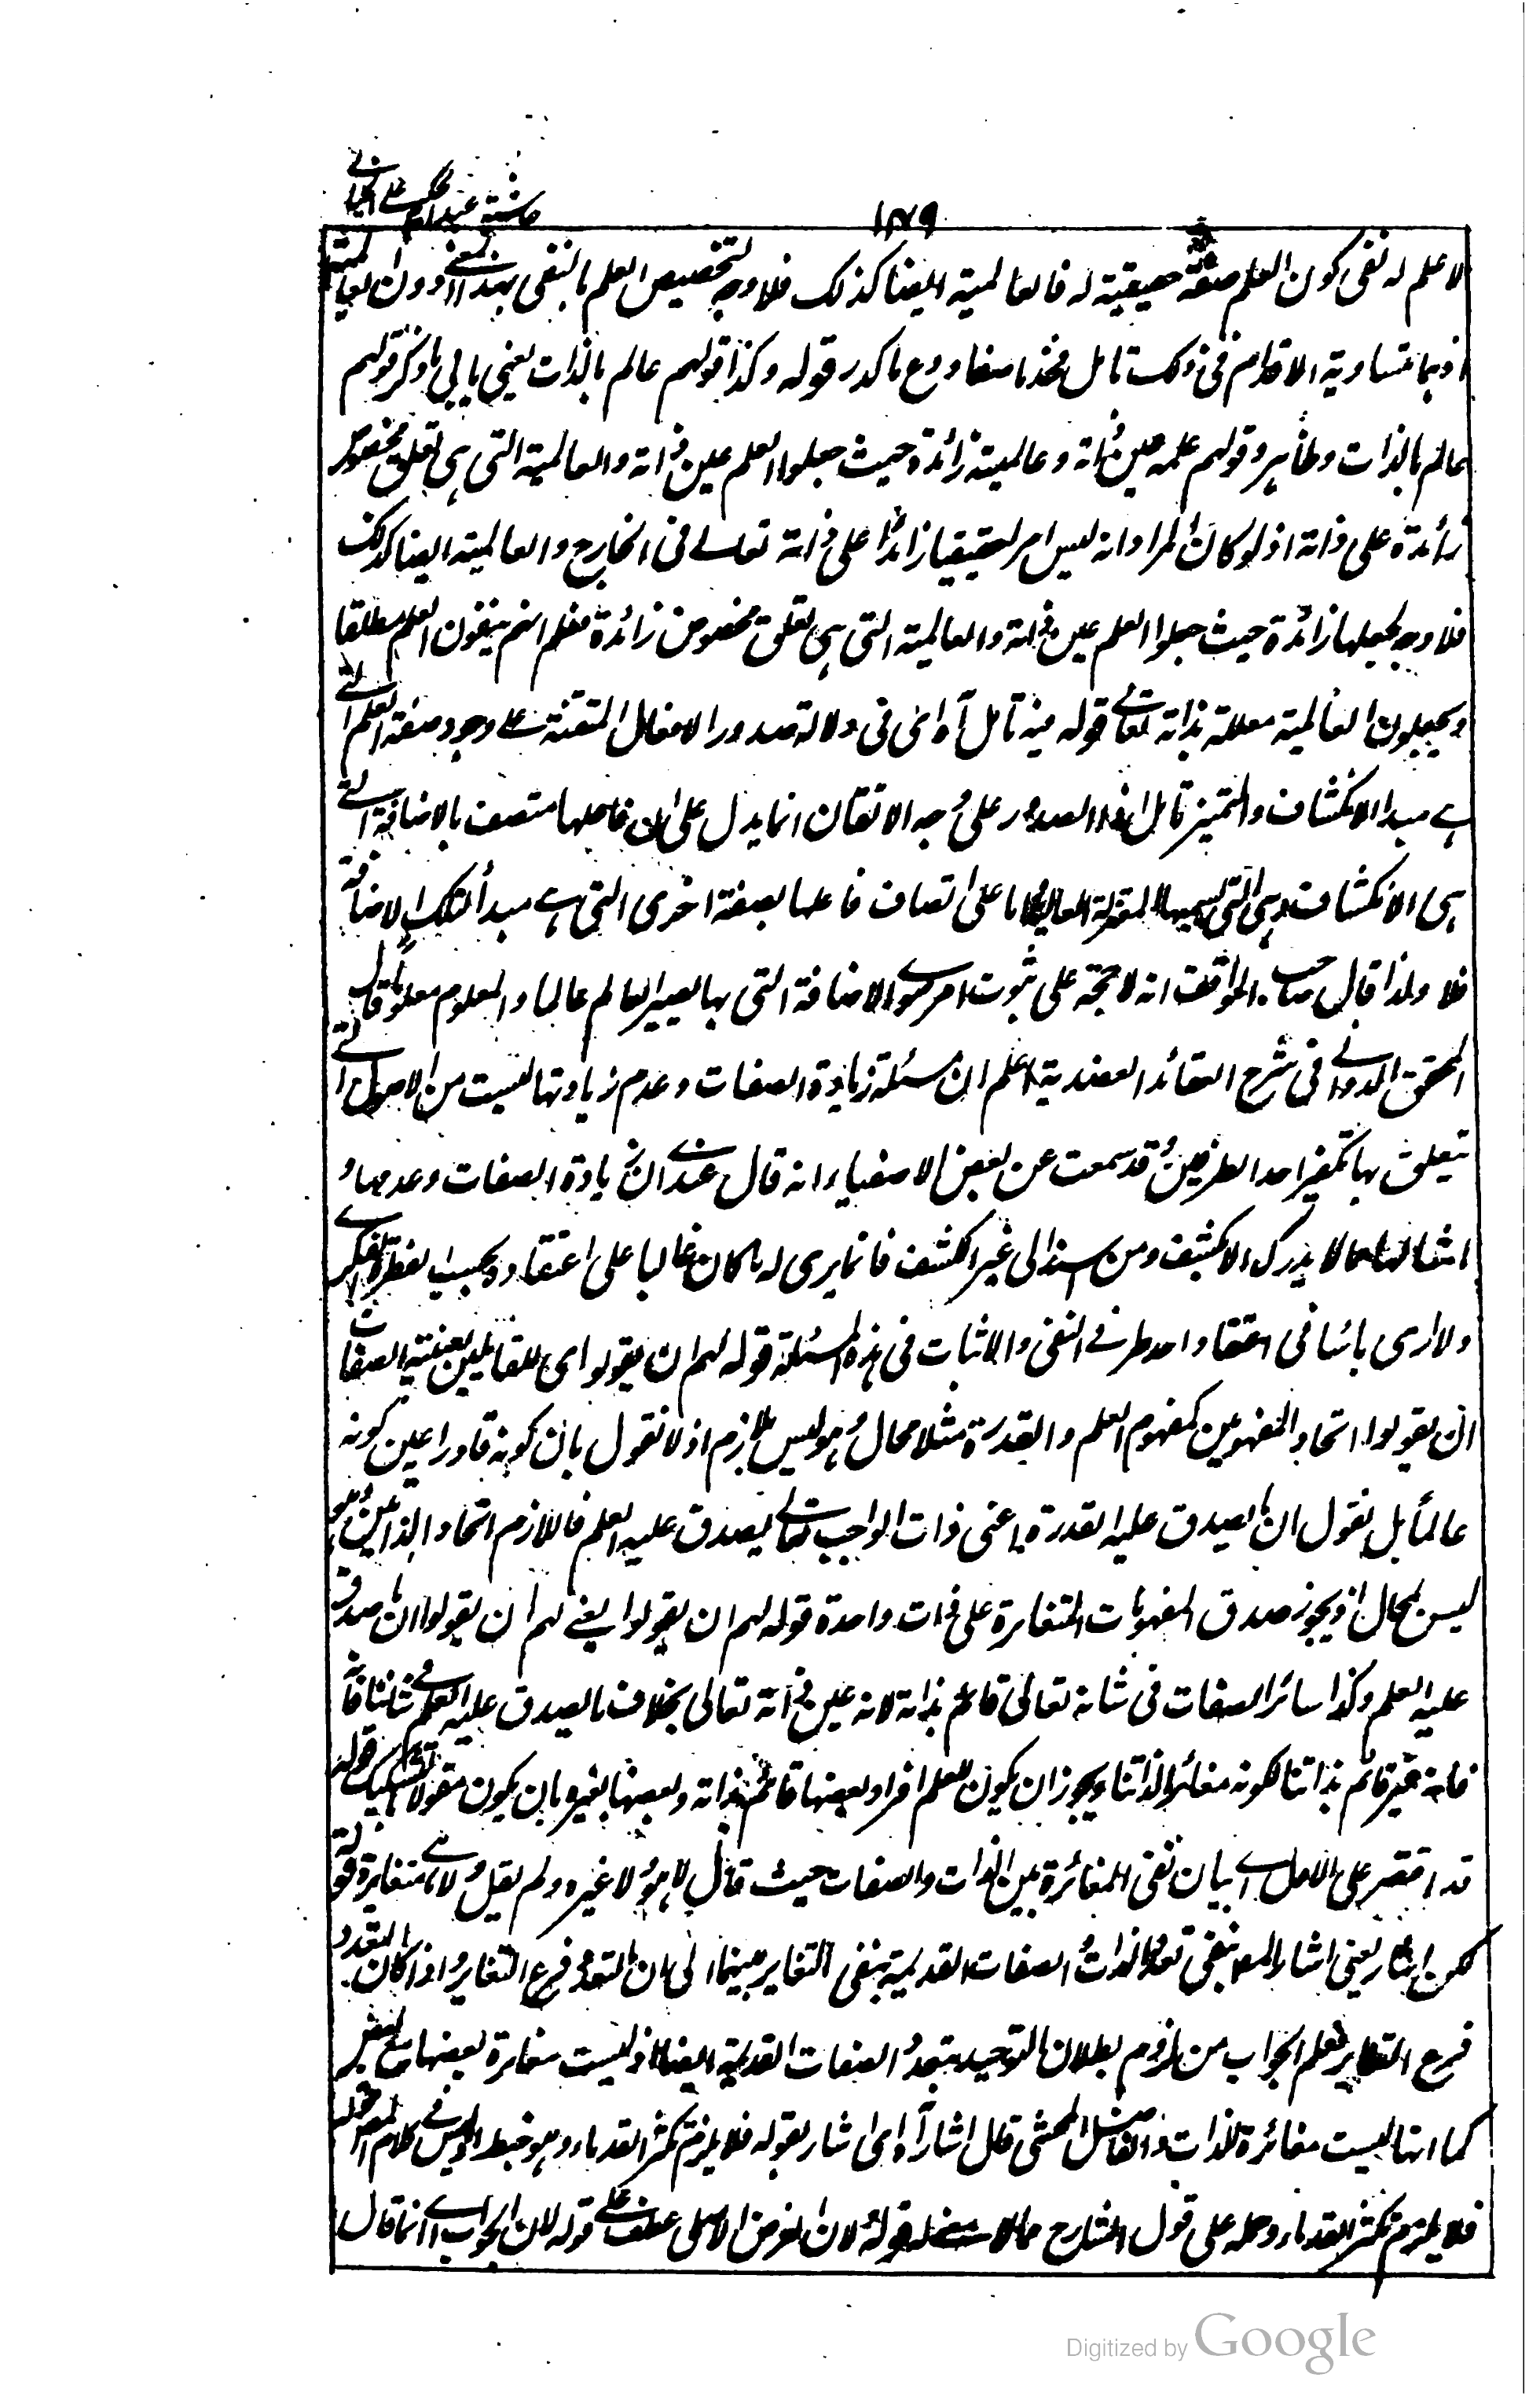 حاشية عبد الحكيم على الخيالي
١٨٩
لا علم له نفى كون العلم صفة حقيقية له فالعالمية ايضا كذلك فلا وجه لتخصيص العلم بالنفى بهذا المعنى دون العالمية
اذ هما متساوية الاقدام فى ذلك تامل فخذ ما صفا ودع ما كدر قوله وكذا قولهم عالم بالذات يعنى يابى ما ذكر قولهم
عالم بالذات وظاهر قولهم علمه عين ذاته وعالميته زائدة حيث جعلوا العلم عين ذاته والعالمية التى هى تعلق مخصوص
زائدة على ذاته اذ لو كان المراد انه ليس امرا حقيقيا زائدا على ذاته تعالى فى الخارج والعالمية ايضا كذلك
فلا وجه لجعلها زائدة حيث جعلوا العلم عين ذاته والعالمية التى هى تعلق مخصوص زائدة فعلم انهم ينفون العلم مطلقا
ويجعلون العالمية معللة بذاته تعالى قوله فيه تامل آه اى فى دلالة صدور الافعال المتقنة على وجود صفة العلم التى
هى مبدا الانكشاف والتميز تامل اذ الصدور على وجه الاتقان انما يدل على ان فاعلها متصف بالاضافة التى
هى الانكشاف وهى التى يسميها المعتزلة العالمية واما على اتصاف فاعلها بصفة اخرى التى هى مبدأ لتلك الاضافة
فلا ولذا قال صاحب المواقف انه لا حجة على ثبوت امر سوى الاضافة التى بها يصير العالم عالما والمعلوم معلوما وقال
المحقق الدوانى فى شرح العقائد العضدية اعلم ان مسئلة زيادة الصفات وعدم زيادتها ليست من الاصول التى
يتعلق بها تكفير احد الطرفين وقد سمعت عن بعض الاصفياء انه قال عندى ان زيادة الصفات وعدمها و
امثالها مما لا يدرك الا بكشف ومن اسند الى غير الكشف فانما يرى له ما كان غالبا على اعتقاده بحسب النظر الفكرى
ولا ارى بائسا فى اعتقاد احد طرفى النفى والاثبات فى هذه المسئلة قوله لهم ان يقولوا اى للقائلين بعينية الصفات
ان يقولوا اتحاد المفهومين كمفهوم العلم والقدرة مثلا محال وهو ليس بلازم اذ لا نقول بان كونه قادرا عين كونه
عالماً بل نقول ان ما يصدق عليه القدرة اعنى ذات الواجب تعالى يصدق عليه العلم فاللازم اتحاد الذاتين وهو
ليس بمحال اذ يجوز صدق المفهومات المتغايرة على ذات واحدة قوله لهم ان يقولوا يعنى لهم ان يقولوا ان ما صدق
عليه العلم وكذا سائر الصفات فى شانه تعالى قائم بذاته لانه عين ذاته تعالى بخلاف ما يصدق عليه العلم فى شاننا فانه
فانه غير قائم بذاتنا لكونه مغائرا لذاتنا ويجوز ان يكون للعلم افراد بعضها قائم بذاته وبعضها بغيره بان يكون مقولا بالتشكيك قوله
قد اقتصر على الاول اى بيان نفى المغائرة بين الذات والصفات حيث قال لا هو ولا غيره ولم يقل ولا هى متغايرة قوله
لكن اشار يعنى اشار المص بنفى تعدد الذات والصفات القديمة بنفى التغاير بينهما الى ان التعدد فرع التغاير واذا كان التعدد
فرع التغاير فعلم الجواب من لزوم بطلان التوحيد بتعدد الصفات القديمة ايضا اذ ليست مغايرة بعضها مع بعض
كما انها ليست مغائرة للذات والفاضل المحشى قال اشار آه اى اشار بقوله فلا يلزم تكثر القدماء وهو خبط اذ ليس فى كلام المص قوله
فلا يلزم تكثر القدماء وحمله على قول الشارح مما لا معنى له قوله لان الغرض الاصلى عطف على قوله لان الجواب اى انما قال
Digitized by Google